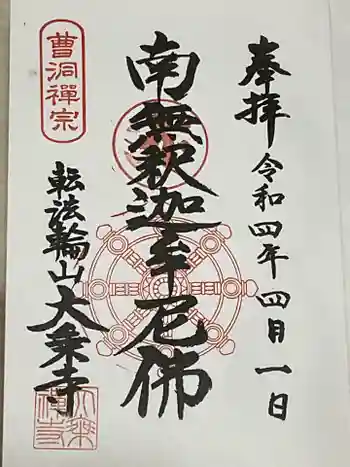 奉拝
令和四年四月一日
南無釈迦牟尼佛
曹洞禪宗
転法輪山
大乗寺